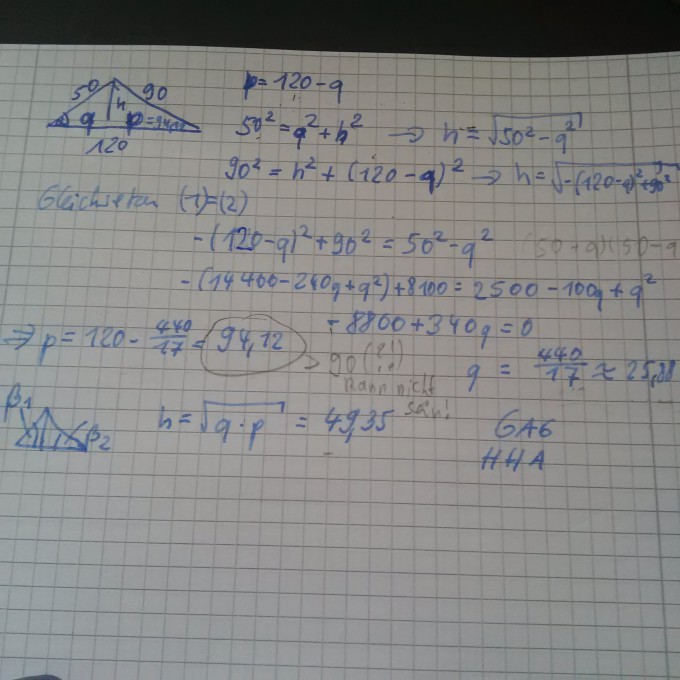 50 90
h
q p=94,12
120
p=120-q
50² = q² + h² → h = √50² - q²
90² = h² + (120-q)² → h = √-(120-q)²+90²
Gleichsetzen (1)=(2)
-(120-q)² + 90² = 50² - q² (50+q)(50-q
-(14400-240q+q²)+8100 = 2500-100q+q²
-8800+340q = 0
⇒ p = 120 - 440/17 = 94,12
> 90 (?!)
kann nicht
sein!
q = 440/17 ≈ 25,88
β1 β2
h = √q·p = 49,35
GA6
HHA